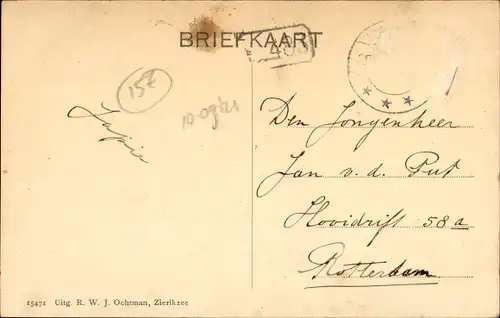 BRIEFKAART
403
157
Japie
Den Jongenheer
Jan v. d. Put
Hooidrift 58a
Rotterdam
15471 Uitg. R. W. J. Ochtman, Zierikzee